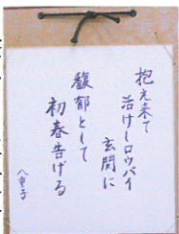 抱え来て
活けしロウバイ
玄関に
馥郁として
初春告げる
八重子